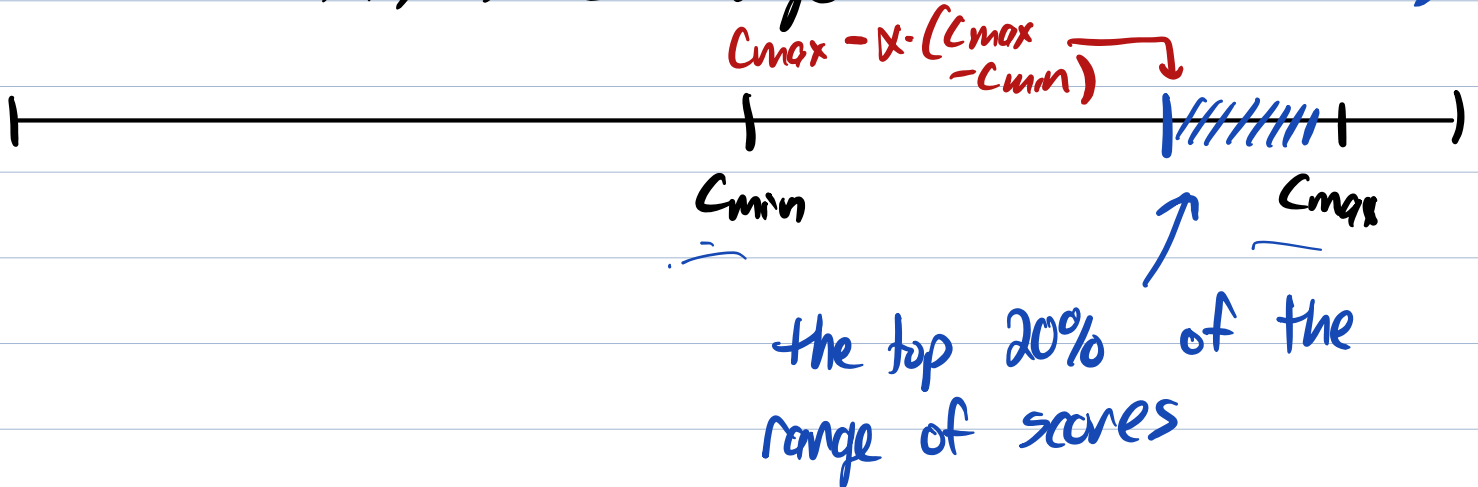 Cmax - α·(Cmax
-Cmin)
Cmin
Cmax
the top 20% of the
range of scores